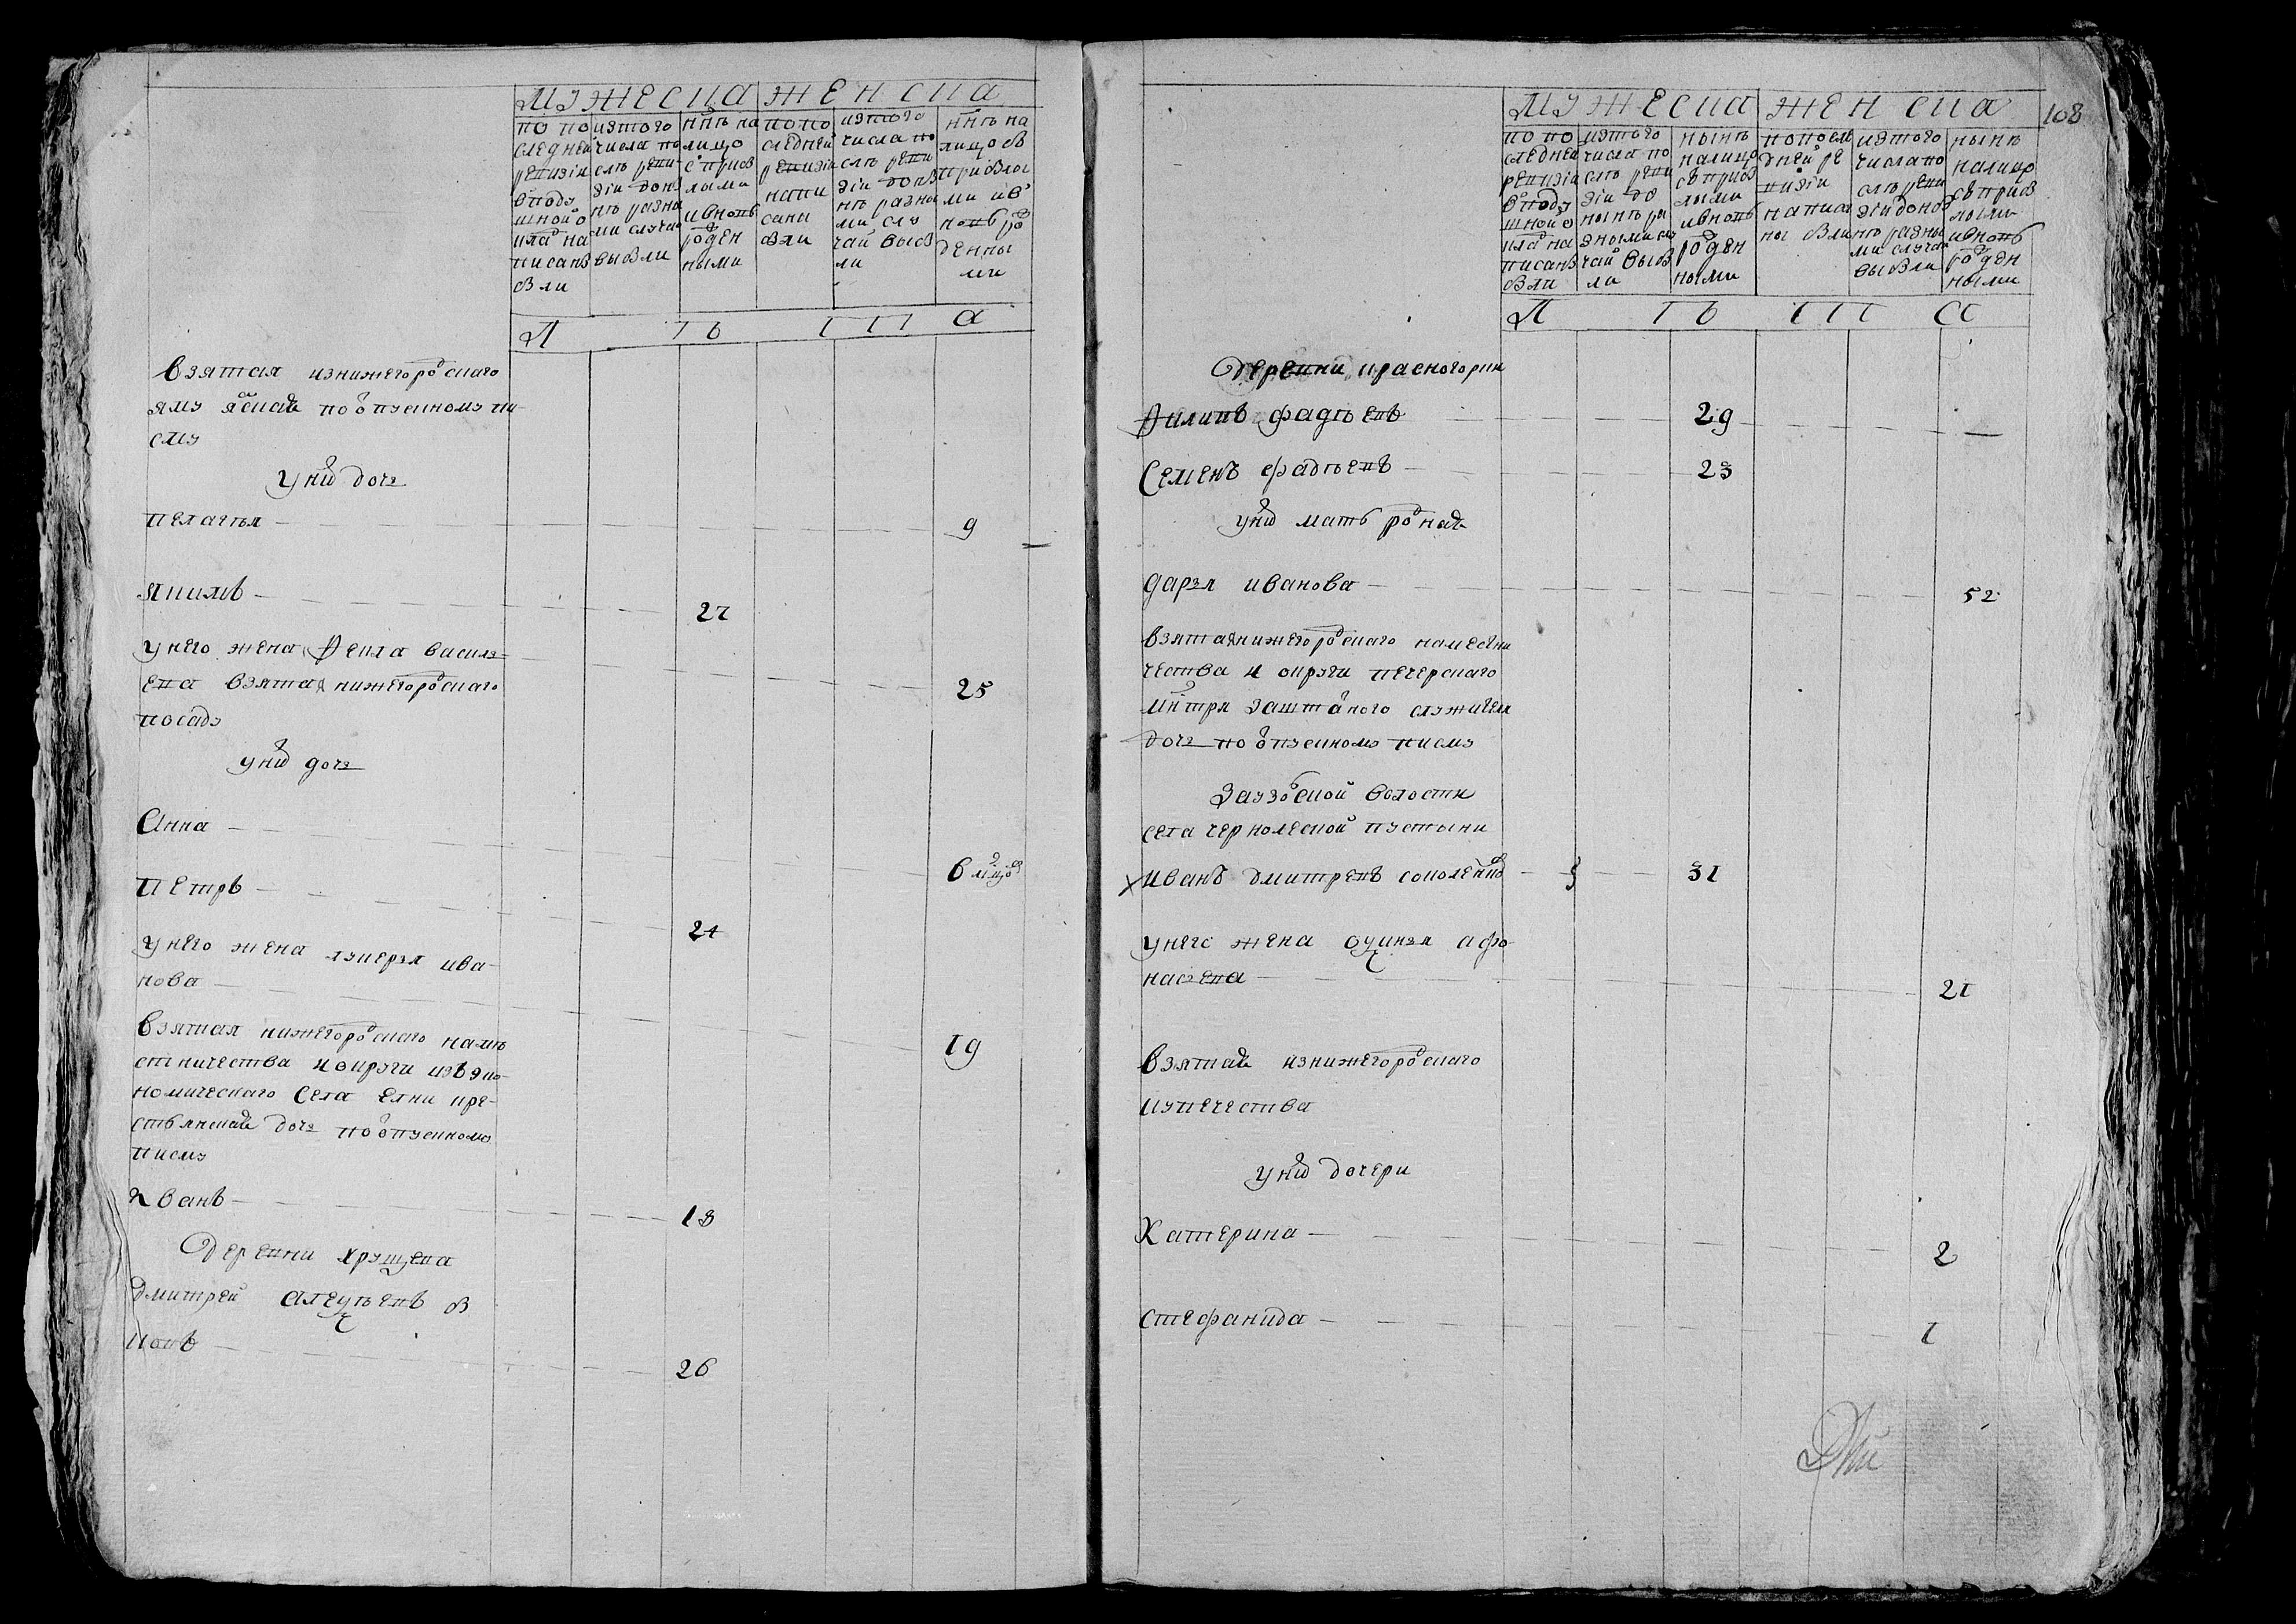 мужеска женска
по последней ревизіи в подушной оклад написаны были
из того числа после ревизіи до ныне разными случаи выбыли
ныне на лицо с прибылыми и вновь рожденными
по последней ревизіи написаны были
из того числа после ревизіи до ныне разными случаи выбыли
ныне на лицо с прибылыми и вновь рожденными
Л Ѣ Т А
взятая изнижегородскаго
яму ямская по отпускному пи-
сму
у них дочь
пелагѣя 9
Якимъ 27
у него жена Фекла василь-
ева взятая нижегородскаго 25
посаду
у них дочь
Анна 6 мцов
Петръ 24
у него жена лукерья ива-
нова
взятая нижегородскаго намѣ 19
стничества и округи изъ эко-
номическаго села елни кре-
стьянская дочь по отпускному
писму
Иванъ 18
деревни хрущева
дмитрей алеѵѣевъ б
ковъ 26
108
мужеска женска
по последней ревизіи в подушной оклад написаны были
из того числа после ревизіи до ныне разными случаи выбыли
ныне на лицо с прибылыми и вновь рожденными
по последней ревизіи написаны были
из того числа после ревизіи до ныне разными случаи выбыли
ныне на лицо с прибылыми и вновь рожденными
Л Ѣ Т А
деревни красногорки
Филипъ фадѣевъ 29
Семенъ фадѣевъ 23
у них мать родная
дарья иванова 52
взятая нижегородскаго намесни
чества и округи печерскаго
мнтря заштатного служителя
дочь по отпускному писму
Заузолской волости
села чернолеской пустыни
иванъ дмитревъ соколенков 31
у него жена афо-
насьева 21
взятая изнижегородскаго
купечества
у них дочери
Катерина 2
стефанида 1